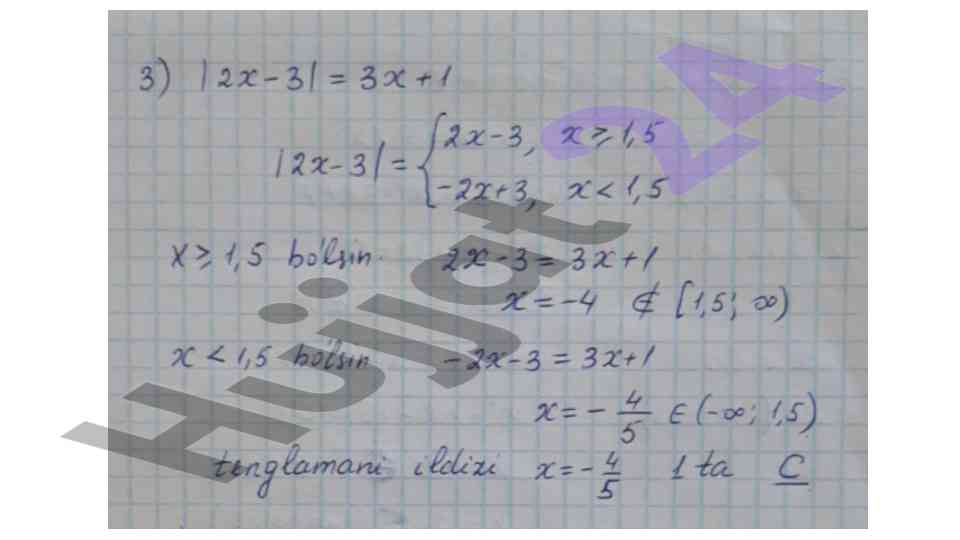 3) |2x-3| = 3x+1
|2x-3| = { 2x-3, x ≥ 1,5
-2x+3, x < 1,5
x ≥ 1,5 bo'lsin. 2x-3 = 3x+1
x = -4 ∉ [1,5; ∞)
x < 1,5 bo'lsin -2x-3 = 3x+1
x = - 4/5 ∈ (-∞; 1,5)
tenglamani ildizi x = - 4/5 1 ta C
Hujjat 24